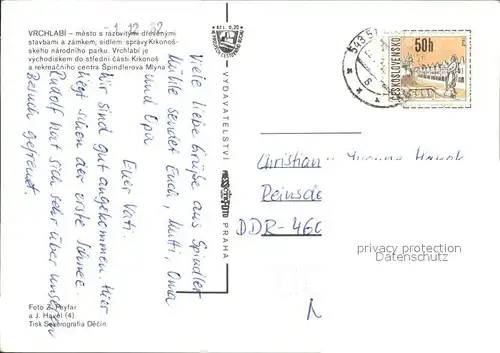 VRCHLABÍ – město s rázovitými dřevěnými
stavbami a zámkem, sídlem správy Krkonoš-
ského národního parku. Vrchlabí je
východiskem do střední části Krkonoš
a rekreačního centra Špindlerova Mlýna
-1.12.82
Viele liebe Grüße aus Spindler
Mühle sendet Euch, Mutti, Oma
und Opa
Euer Vati.
Wir sind gut angekommen. Hier
liegt schon der erste Schnee.
Rudolf hat sich sehr über unseren
Besuch gefreut
Foto Z.
a J. Havel (4)
Tisk Severografia Děčín
KČS 0,20
VYDAVATELSTVÍ PRESSFOTO PRAHA
543 51
50h
ČESKOSLOVENSKO
Christian
Reinsdo
DDR-460
privacy protection
Datenschutz